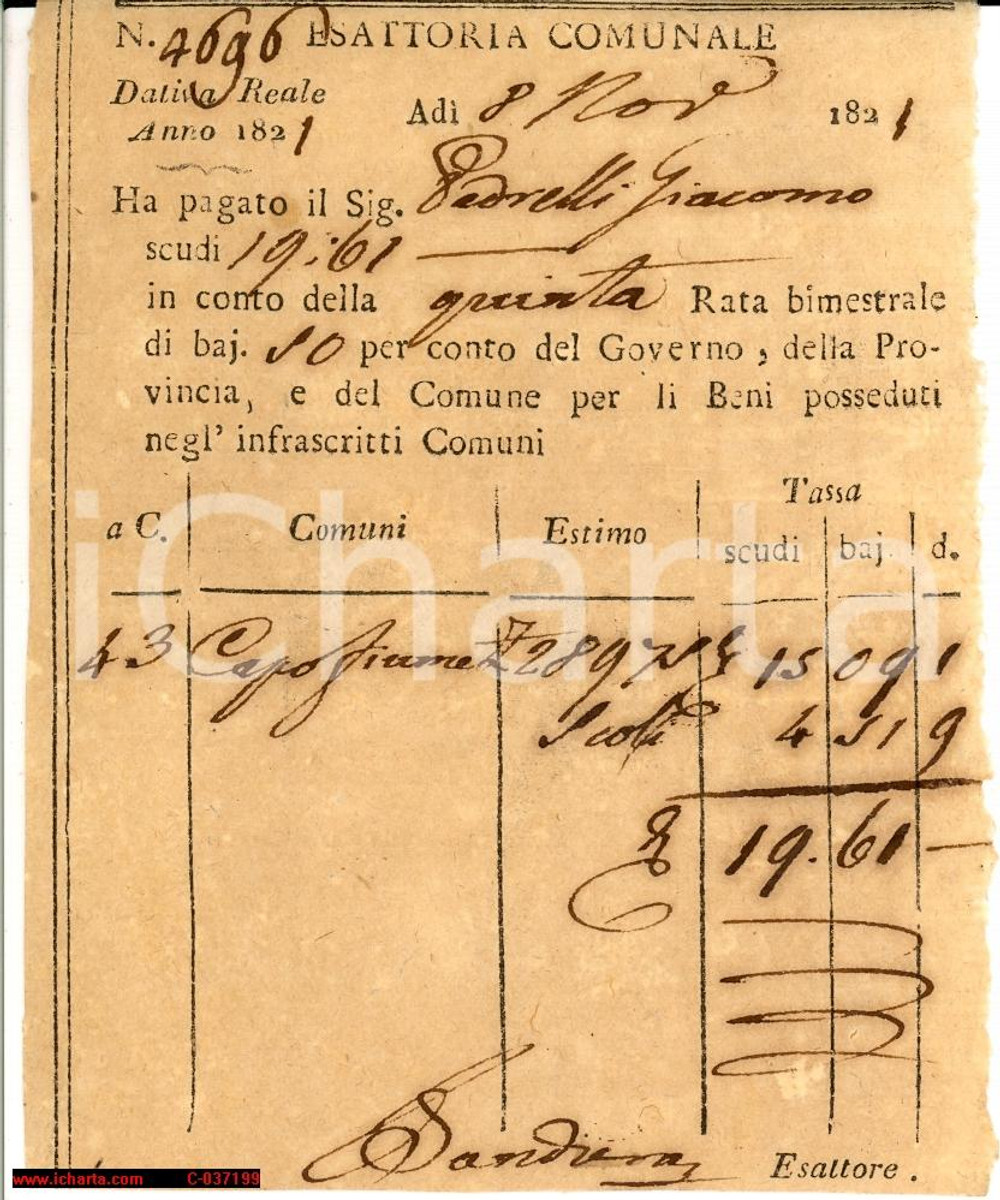 N. 4696 ESATTORIA COMUNALE
Dativa Reale
Anno 1821
Adì 8 Nov 1821
Ha pagato il Sig. Padrelli Giacomo
scudi 19:61
in conto della quinta Rata bimestrale
di baj. 50 per conto del Governo, della Pro-
vincia, e del Comune per li Beni posseduti
negl' infrascritti Comuni
a C. Comuni Estimo Tassa
scudi baj. d.
43 Capofiume 2897 15 09 1
Scoli 4 51 9
19. 61 —
Esattore.
iCharta
www.icharta.com C-037199